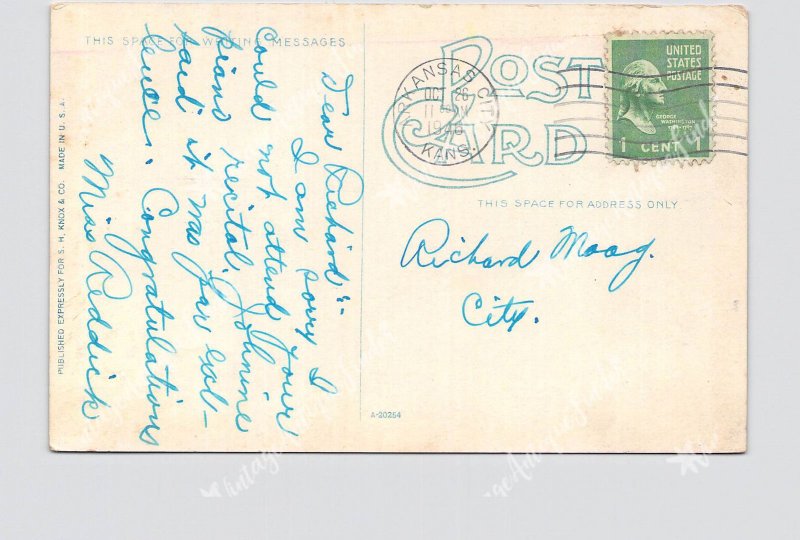 THIS SPACE FOR WRITING MESSAGES
Dear Richard:-
I am sorry I
could not attend your
piano recital. Johnine
said it was par exel-
lence. Congratulations
Miss Reddick
PUBLISHED EXPRESSLY FOR S. H. KNOX & CO. MADE IN U. S. A.
POST
CARD
ARKANSAS CITY
OCT 26
11
KANS.
UNITED
STATES
POSTAGE
GEORGE
WASHINGTON
1 CENT
THIS SPACE FOR ADDRESS ONLY
Richard Moag.
City.
A-20254